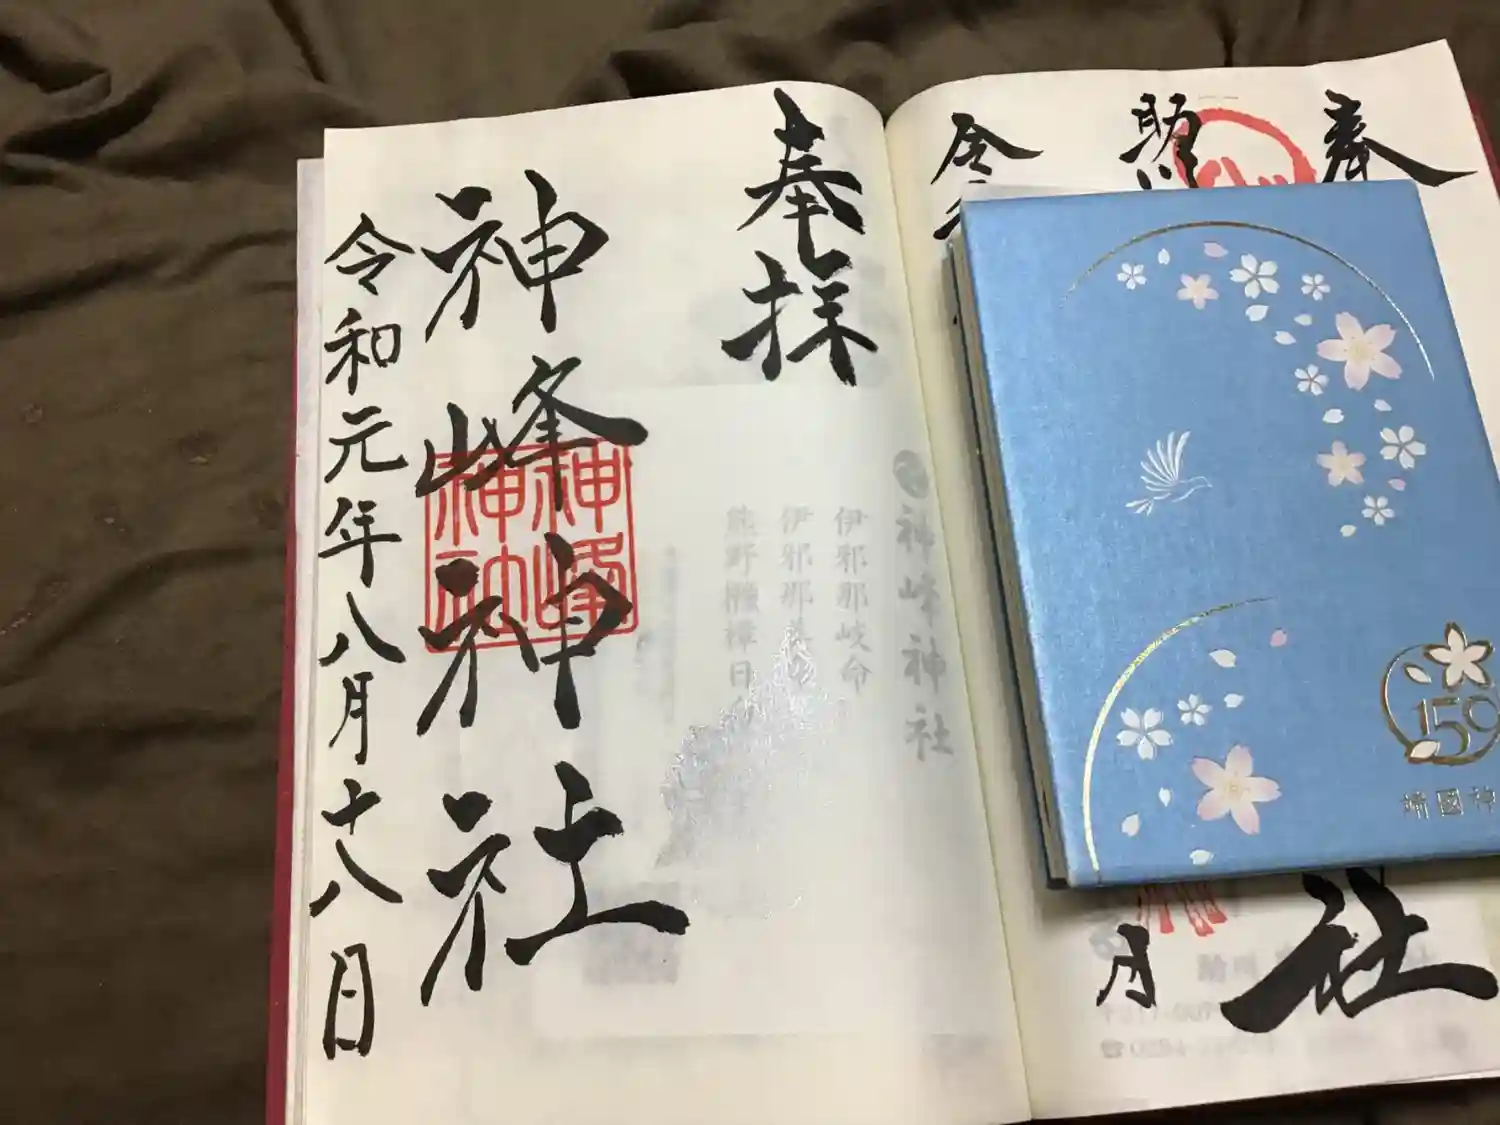 奉拝
神峰神社
令和元年八月十八日
神峰神社
神峰神社
伊邪那岐命
伊邪那美命
熊野櫲樟日
奉
助川
社
令
月
150
靖國神